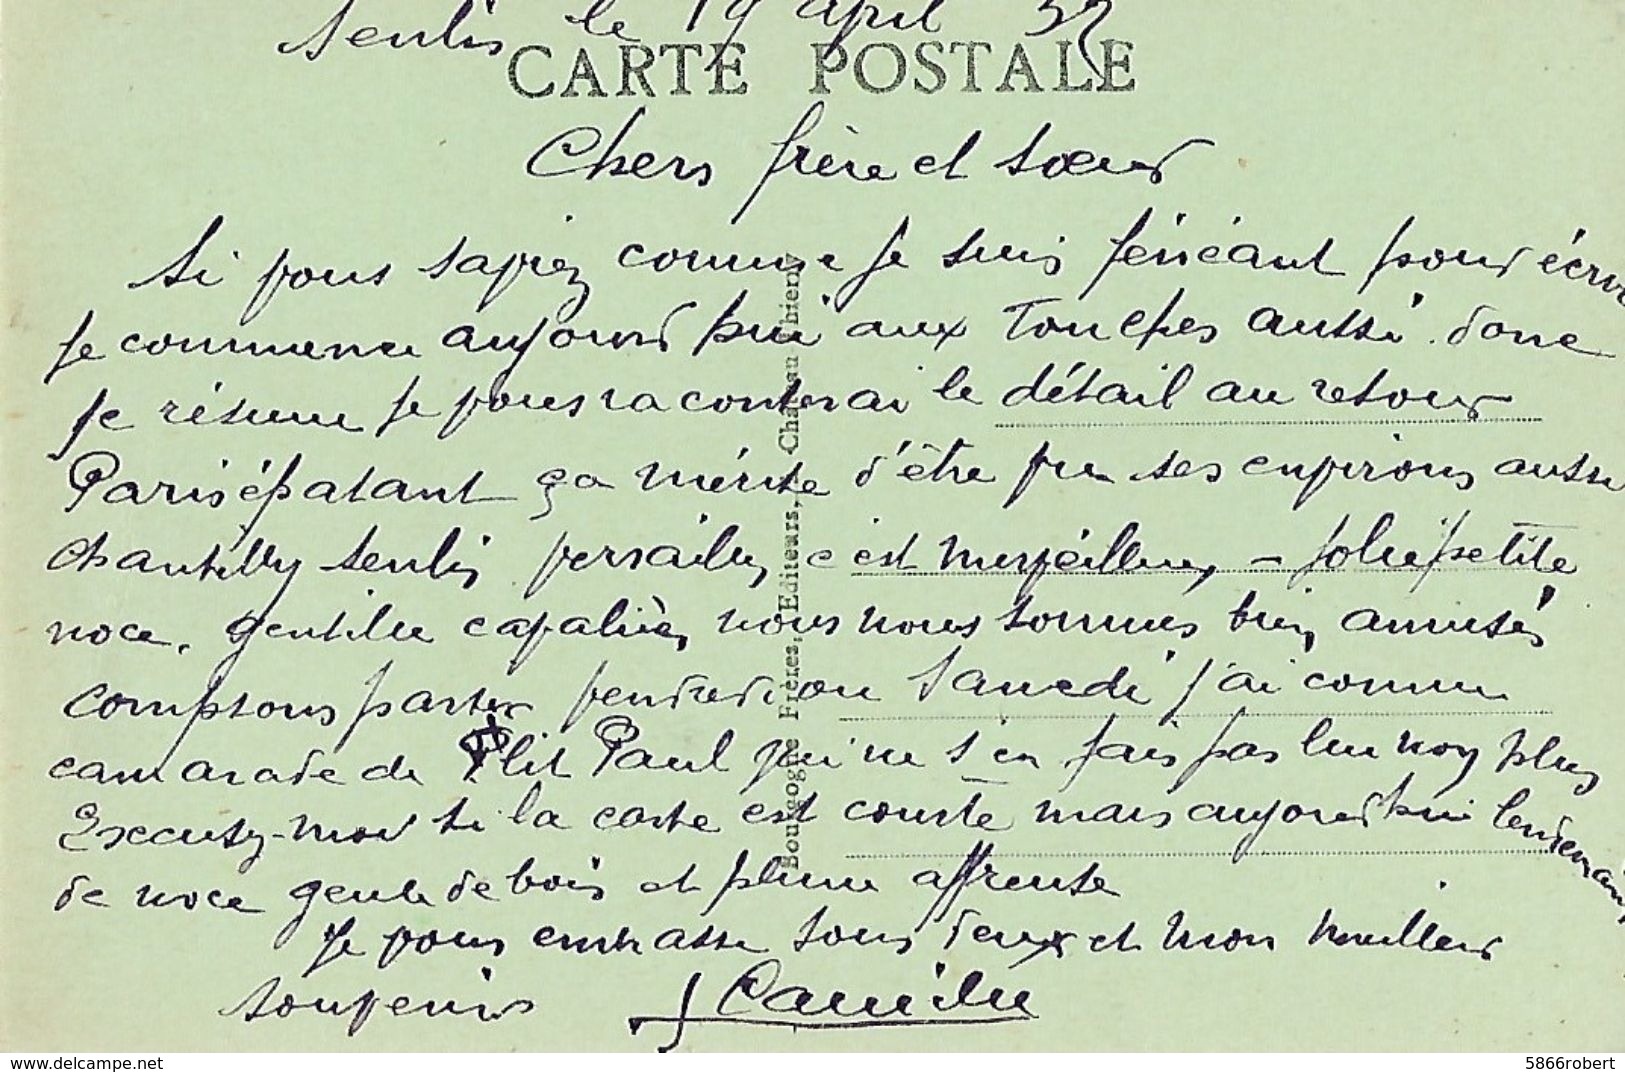 Senlis le 19 april 32
CARTE POSTALE
Chers frère et sœur
Si vous saviez comme je suis fénéant pour écrire
je commence aujourd'hui aux Touches aussi donc
je résume je vous raconterai le détail au retour
Paris épatant ça mérite d'être vu ses environs aussi
Chantilly Senlis Versailles c'est merveilleux - jolie petite
noce, gentille cavalière, nous nous sommes bien amusés
comptons partir vendredi ou Samedi j'ai comme
camarade de P'tit Paul qui ne s'en fais pas lui non plus
Excusez-moi si la carte est courte mais aujourd'hui lendemain
de noce gueule de bois et plume affreuse
Je vous embrasse tous deux et mon meilleur
souvenir Camille
Bourgogne Frères, Editeurs, Château Thierry
www.delcampe.net
5866robert